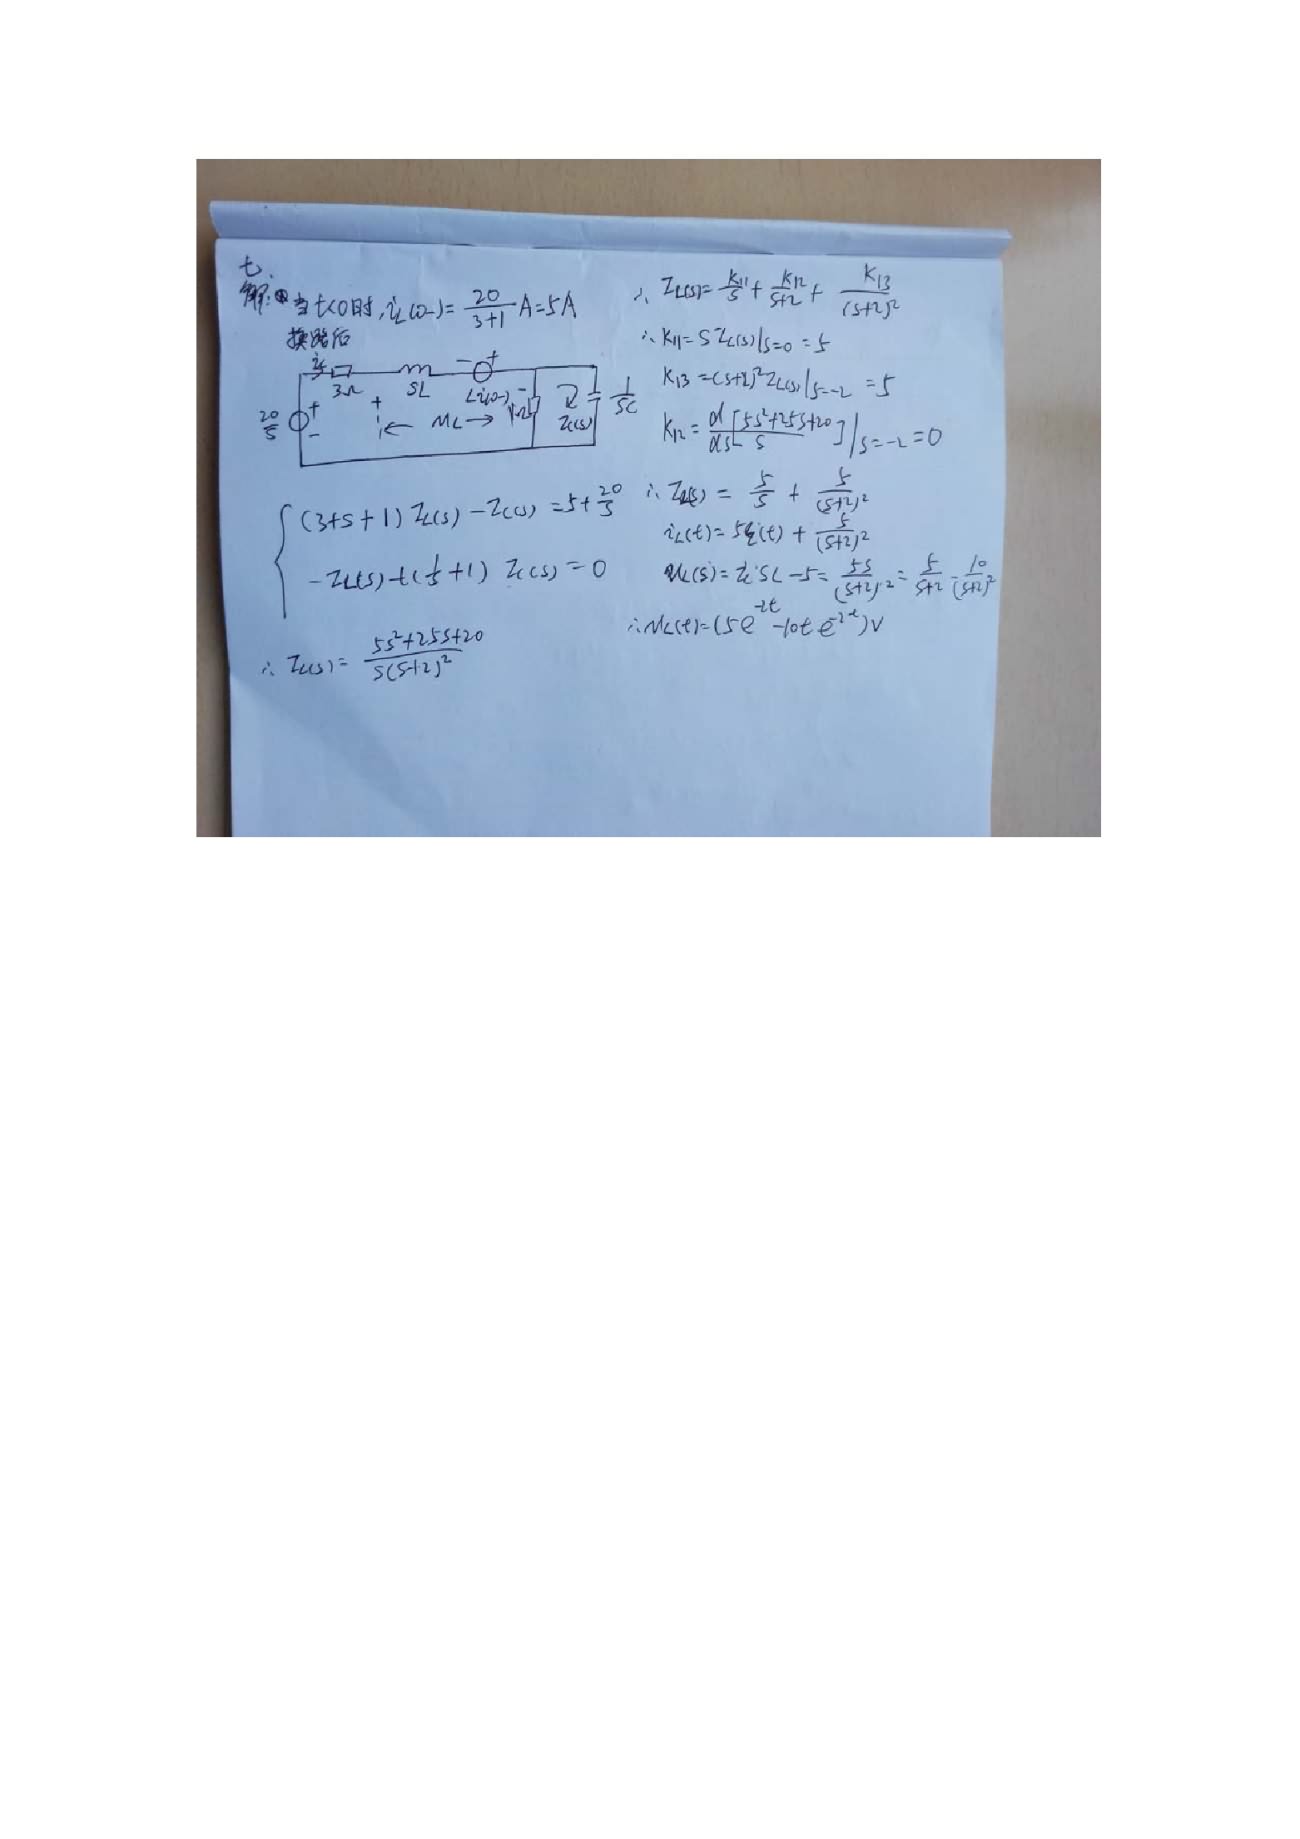 七.
解: 当t<0时, i_L(0-) = 20/(3+1) A = 5A
换路后
3Ω SL - +
Li(0-) - 1/SC
20/S + - + - ← u_L → 1Ω I_C(s)
{ (3+s+1) I_L(s) - I_C(s) = 5 + 20/s
- I_L(s) + (1/s + 1) I_C(s) = 0
∴ I_L(s) = (5s²+25s+20)/(s(s+2)²)
∴ I_L(s) = K11/s + K12/(s+2) + K13/(s+2)²
∴ K11 = S I_L(s)|s=0 = 5
K13 = (s+2)² I_L(s)|s=-2 = 5
K12 = d/ds [(5s²+25s+20)/s]|s=-2 = 0
∴ I_L(s) = 5/s + 5/(s+2)²
i_L(t) = 5ε(t) + 5/(s+2)²
u_L(s) = I_L·SL - 5 = 5s/(s+2)² = 5/(s+2) - 10/(s+2)²
∴ u_L(t) = (5e^-2t - 10t e^-2t) V